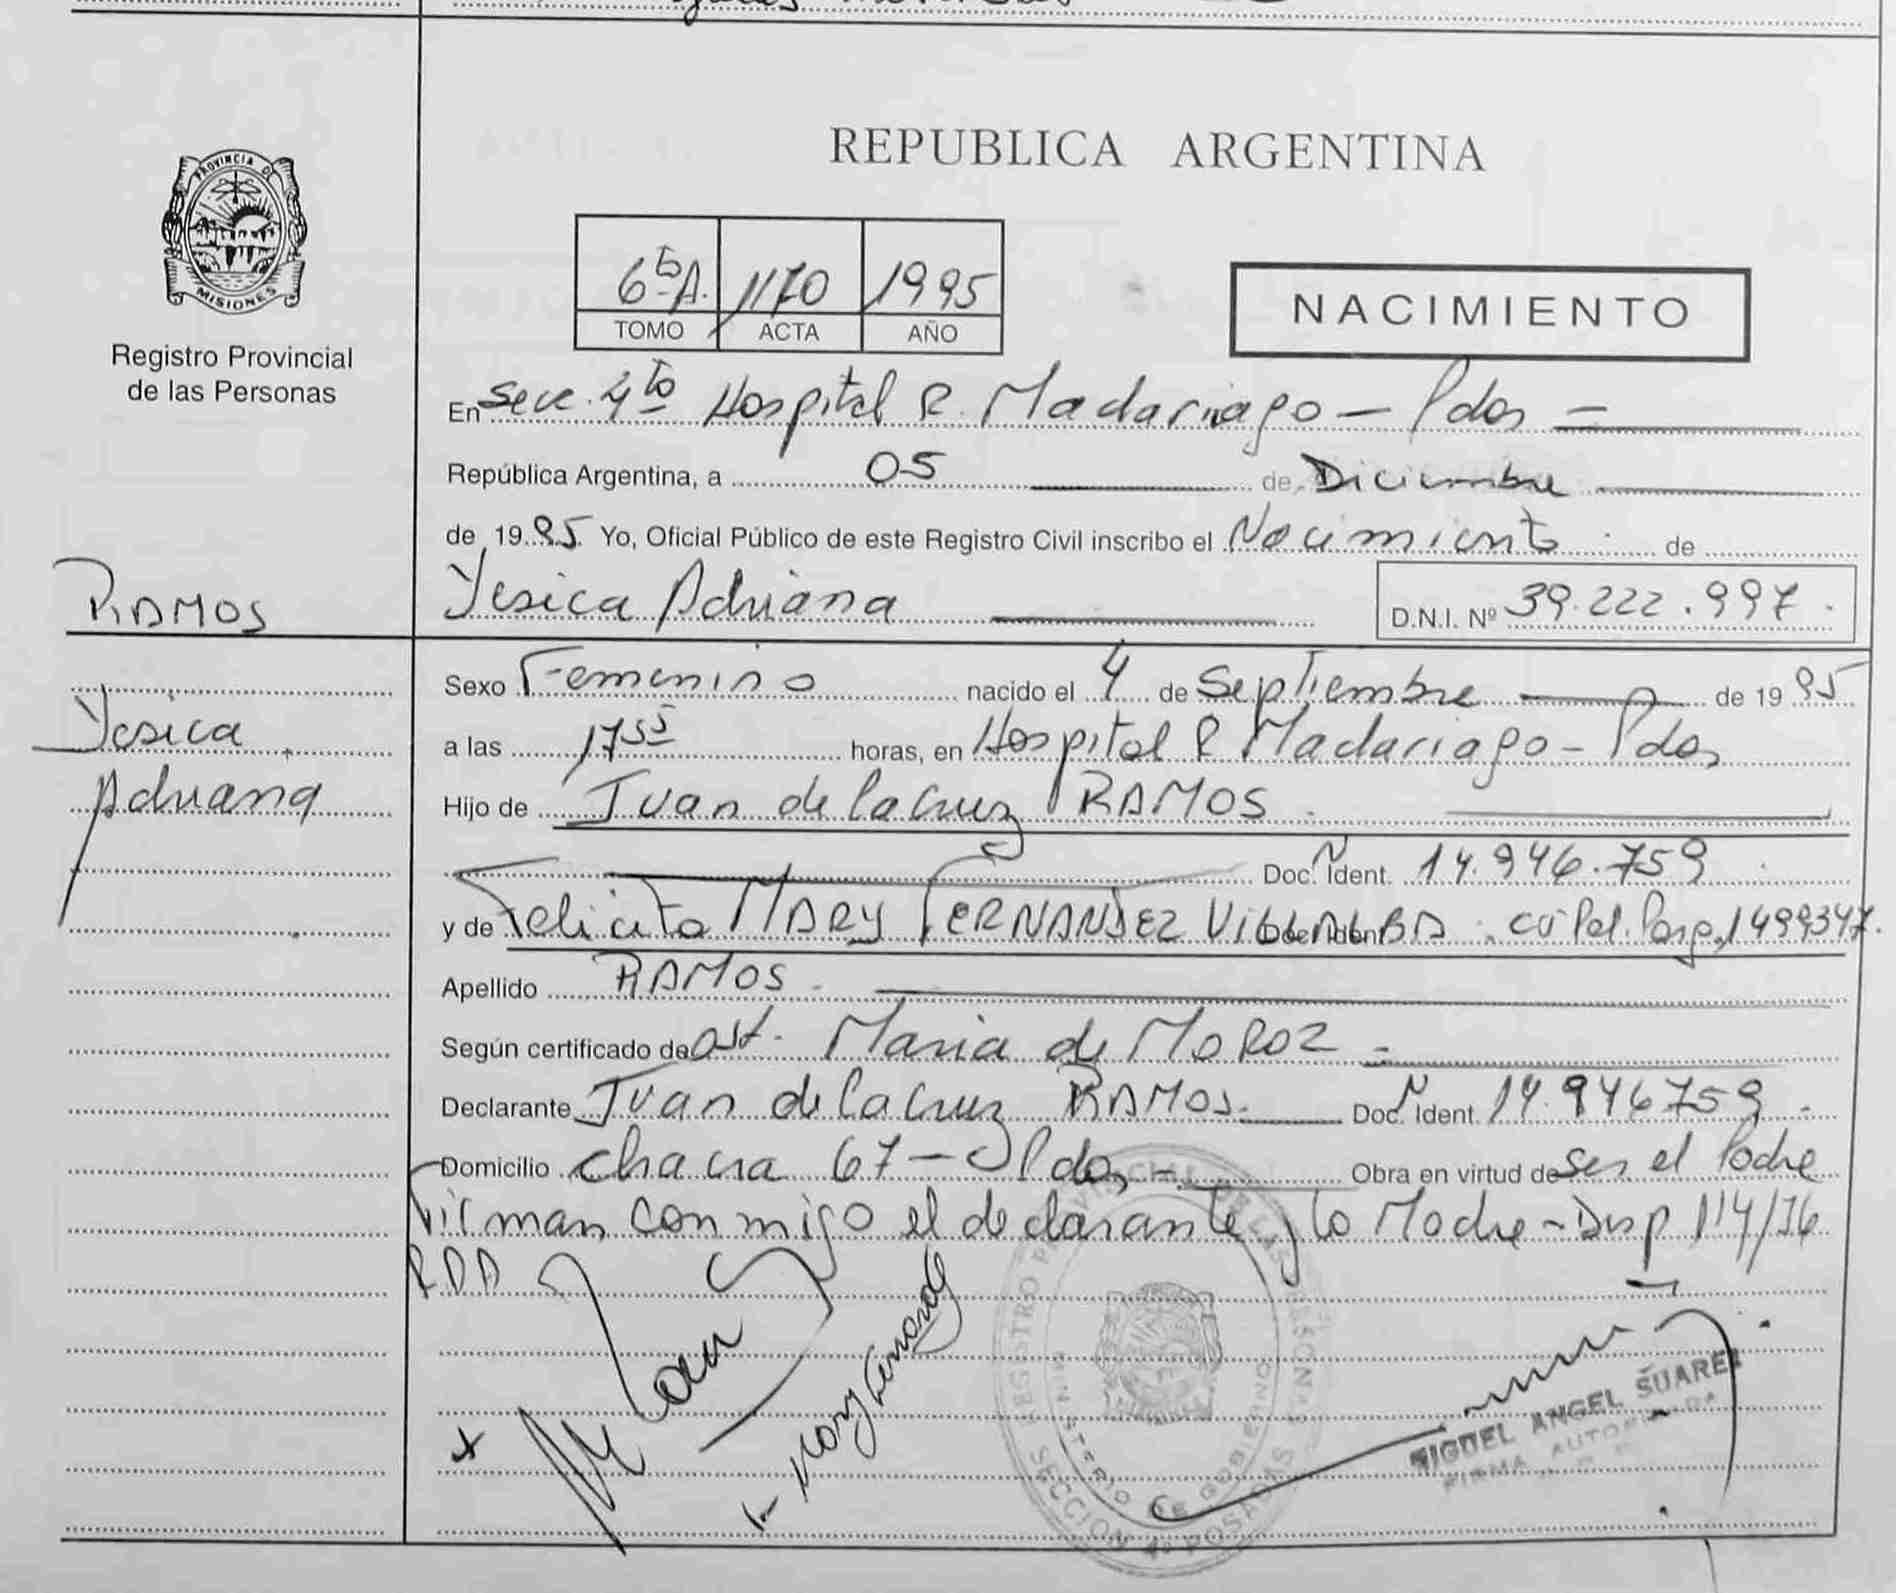 PROVINCIA DE
MISIONES
Registro Provincial
de las Personas
REPUBLICA ARGENTINA
6to A. 1170 1995
TOMO ACTA AÑO
NACIMIENTO
En Secc. 4to Hospital R. Madariaga - Pdas -
República Argentina, a 05 de Diciembre
de 1995 Yo, Oficial Público de este Registro Civil inscribo el Nacimiento de
RAMOS
Yesica Adriana D.N.I. Nº 39.222.997.
Sexo Femenino nacido el 4 de Septiembre de 1995
Yesica
a las 17 55 horas, en Hospital R Madariaga - Pdas
Adriana
Hijo de Juan de la Cruz RAMOS
Doc. Ident. 14.946.759
y de Felicita MARY FERNANDEZ VillALBA. Pol. Parg. 1499347.
Apellido RAMOS.
Según certificado de Ost. Maria de MOROZ -
Declarante Juan de la Cruz RAMOS. Doc. Ident. 14.946759.
Domicilio Chacra 67 - Pdas - Obra en virtud de ser el Padre
Firman conmigo el declarante y la Madre - Disp 114/76
RDA
Mary Fernandez
REGISTRO PROVINCIAL DE LAS PERSONAS
MINISTERIO DE GOBIERNO
SECCION 4º POSADAS
MIGUEL ANGEL SUAREZ
FIRMA AUTORIZADA